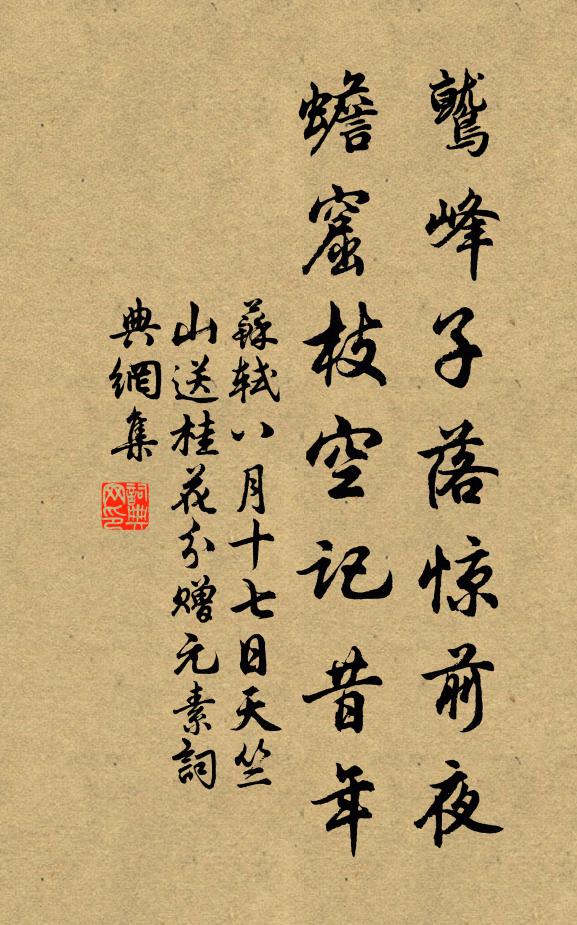 鹫峰子落惊前夜
蟾窟枝空记昔年
蘇軾八月十七日天竺
山送桂花分赠元素詞
典網集
詞典
网印